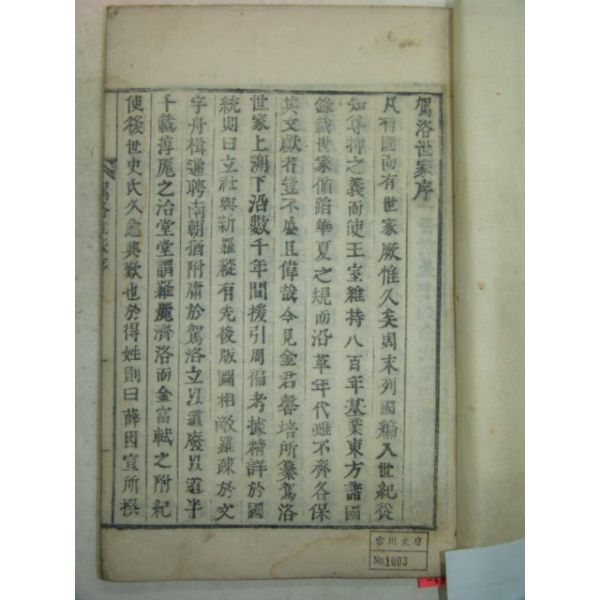 駕洛世家序
凡有國而有世家厥惟久矣周末列國編入世紀從
知尊抑之義而使王室維持八百年基業東方諸國
錄載世家備蹈華夏之規而沿革年代雖不齊各保
其文獻者豈不盛且偉說今見金君馨培所纂駕洛
世家上溯下沿數千年間援引周偏考據精詳於國
統則曰立社與新羅縱有先後版圖相敵羅疎於文
字舟楫通聘南朝猶附庸於駕洛立以道廢以道半
千載淳厖之治堂堂謂羅麗濟洛而金富軾之附紀
使後世史氏久愈興歎也於得姓則曰薛因宣所撰
No.1003